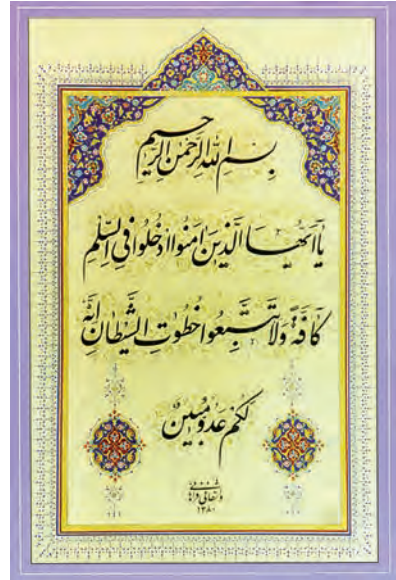 بسم الله الرحمن الرحیم
یا ایها الذین امنوا ادخلوا فی السلم
کافةً ولا تتبعوا خطوت الشیطان انه
لکم عدو مبین
۱۳۸۰